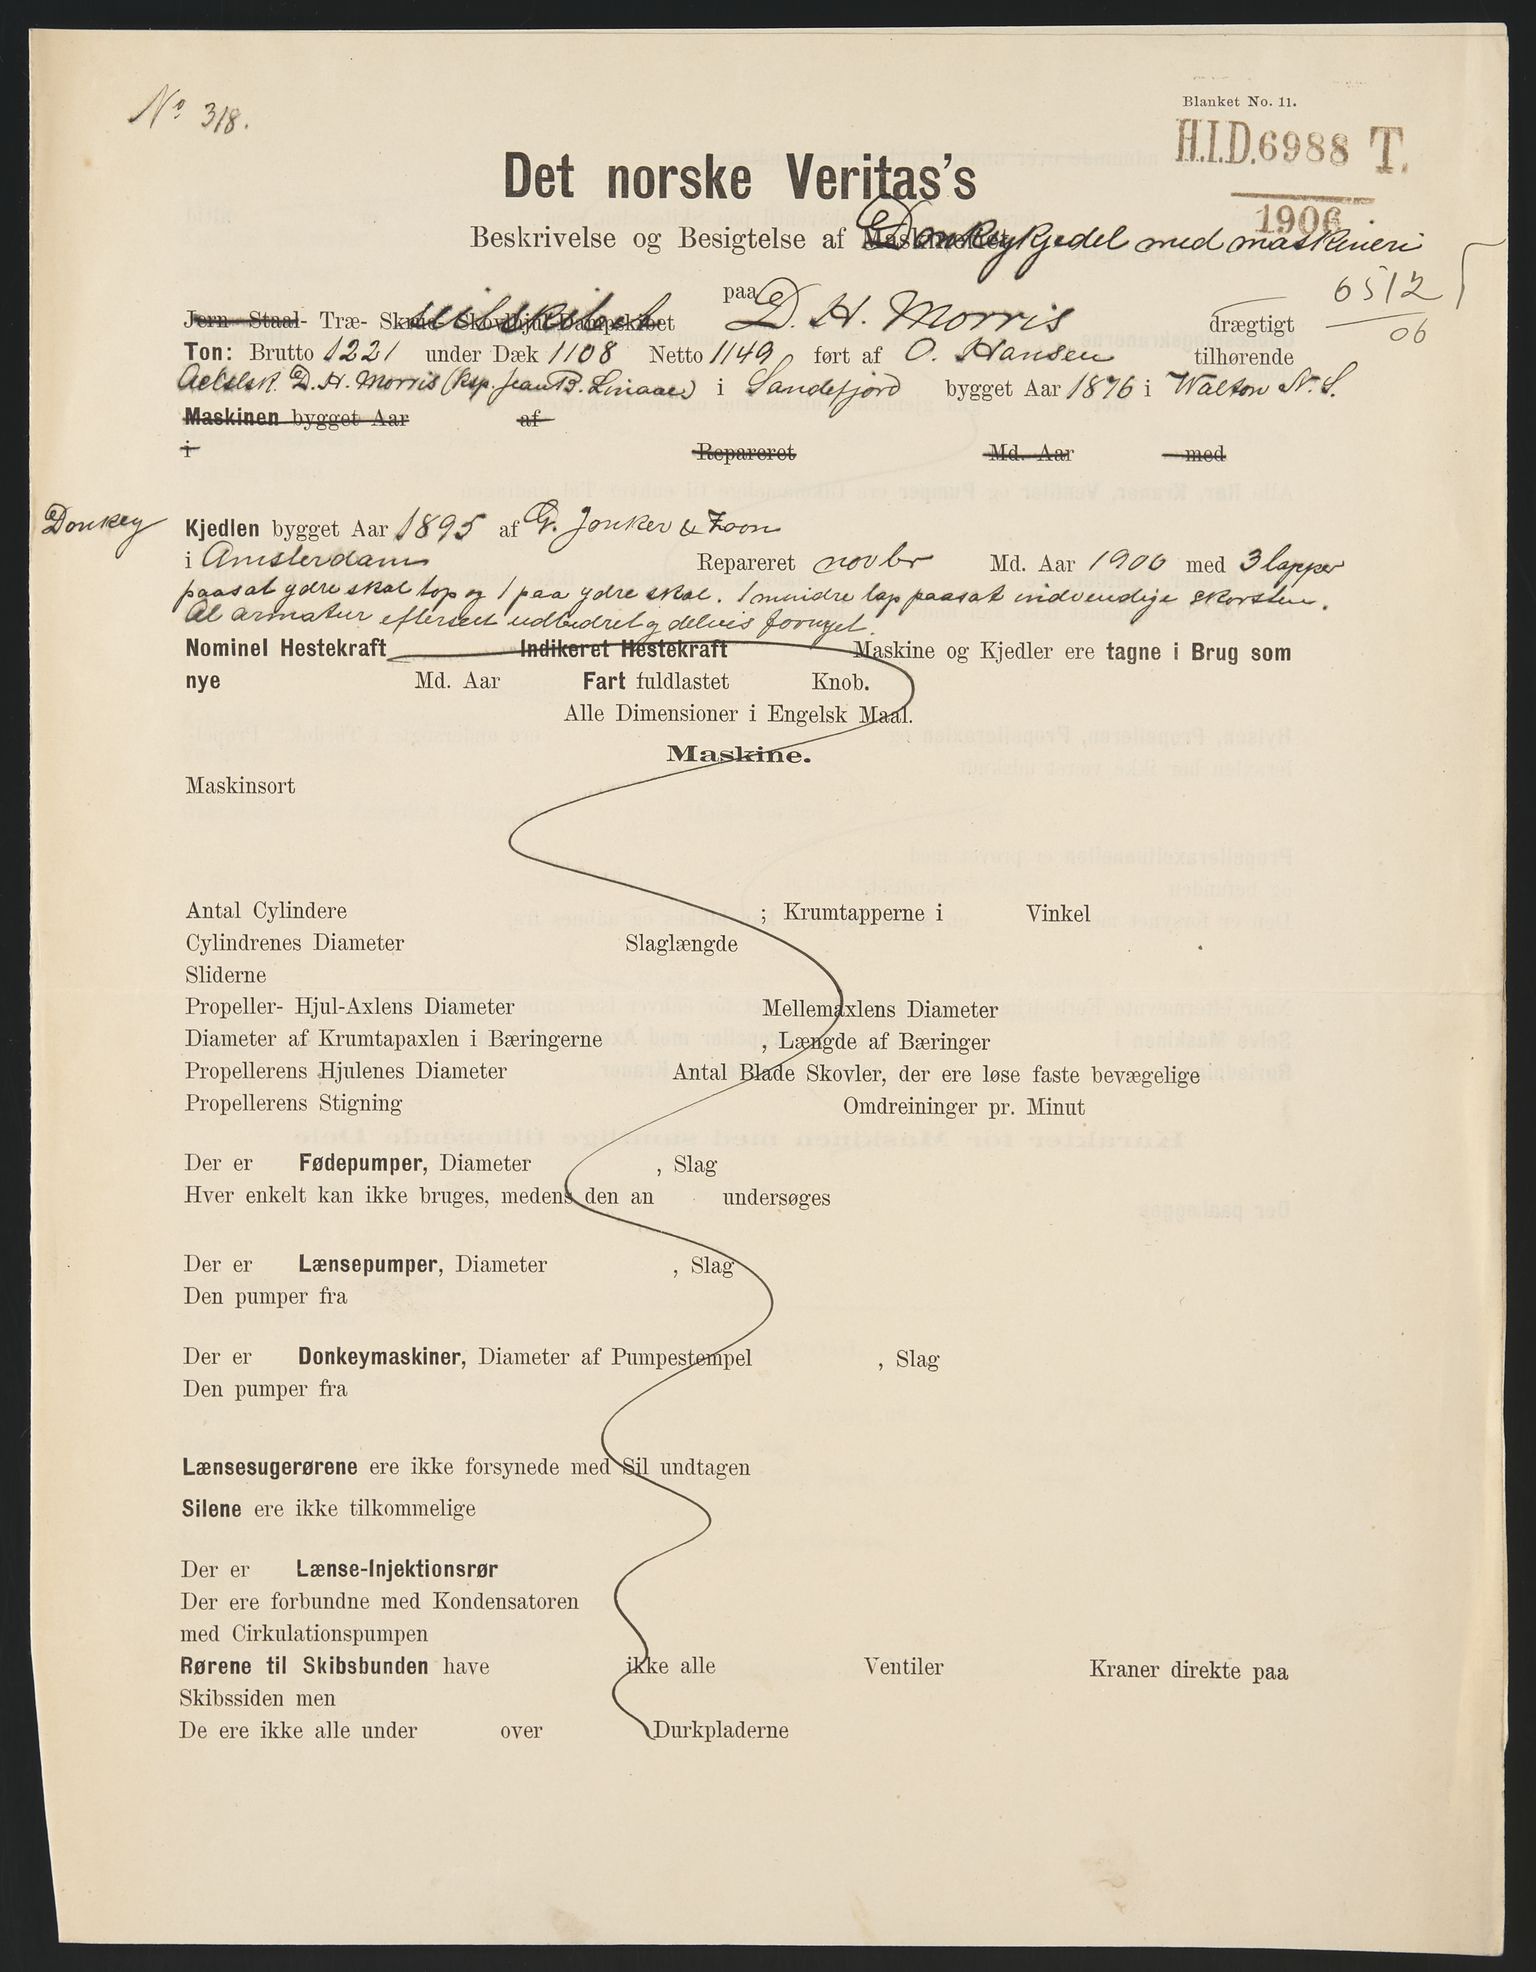 No 318.
Blanket No. 11.
H.I.D. 6988 T.
1906
Det norske Veritas's
Beskrivelse og Besigtelse af Donkeykjedel med maskineri
6512
06
paa D. H. Morris
Jern- Staal- Træ- Skrue- Skovlhjul-Dampskibet seilskibet drægtigt
Ton: Brutto 1221 under Dæk 1108 Netto 1149 ført af O. Hansen tilhørende
D. H. Morris (ksp. Jean B. Linaae) i Sandefjord bygget Aar 1876 i Walton N. S.
Maskinen bygget Aar af
i Repareret Md. Aar med
Donkey Kjedlen bygget Aar 1895 af G. Jonker & Zoon
i Amsterdam Repareret novbr Md. Aar 1906 med 3 lapper
paasat ydre skal top og 1 paa ydre skal. 1 mindre lap paasat indvendige skorsten.
Al armatur efterseet udbedret og delvis fornyet.
Nominel Hestekraft Indikeret Hestekraft Maskine og Kjedler ere tagne i Brug som
nye Md. Aar Fart fuldlastet Knob.
Alle Dimensioner i Engelsk Maal.
Maskine.
Maskinsort
Antal Cylindere ; Krumtapperne i Vinkel
Cylindrenes Diameter Slaglængde
Sliderne
Propeller- Hjul-Axlens Diameter Mellemaxlens Diameter
Diameter af Krumtapaxlen i Bæringerne , Længde af Bæringer
Propellerens Hjulenes Diameter Antal Blade Skovler, der ere løse faste bevægelige
Propellerens Stigning Omdreininger pr. Minut
Der er Fødepumper, Diameter , Slag
Hver enkelt kan ikke bruges, medens den an undersøges
Der er Lænsepumper, Diameter , Slag
Den pumper fra
Der er Donkeymaskiner, Diameter af Pumpestempel , Slag
Den pumper fra
Lænsesugerørene ere ikke forsynede med Sil undtagen
Silene ere ikke tilkommelige
Der er Lænse-Injektionsrør
Der ere forbundne med Kondensatoren
med Cirkulationspumpen
Rørene til Skibsbunden have ikke alle Ventiler Kraner direkte paa
Skibssiden men
De ere ikke alle under over Durkpladerne